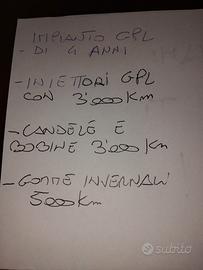 IMPIANTO GPL
- DI 4 ANNI
- INIETTORI GPL
CON 3'000 Km
- CANDELE E
BOBINE 3'000 Km
- GOMME INVERNALI
5000 Km
subito